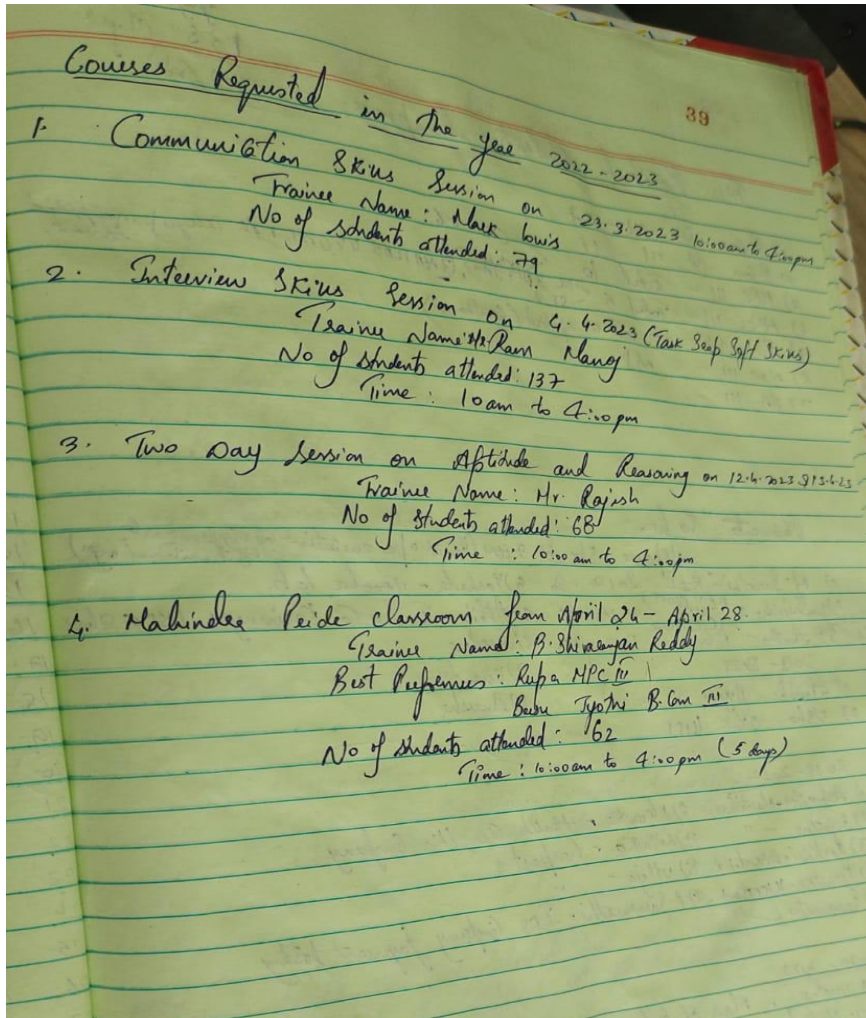 39
Courses Requested in the year 2022-2023
1. Communication Skills Session on 23.3.2023 10:00am to 4:00pm
Trainee Name: Mark lowis
No of students attended: 79
2. Interview Skills Session on 4.4.2023 (Task Soft Skills)
Trainee Name: Mr. Ram Manoj
No of students attended: 137
Time: 10am to 4:00pm
3. Two Day Session on Aptitude and Reasoning on 12.4.2023 & 13.4.23
Trainee Name: Mr. Rajesh
No of students attended: 68
Time: 10:00 am to 4:00pm
4. Mahindra Pride classroom from April 24 - April 28.
Trainee Name: B. Reddy
Best : Rupa MPC III
Jyothi B.Com III
No of students attended: 62
Time: 10:00am to 4:00pm (5 days)